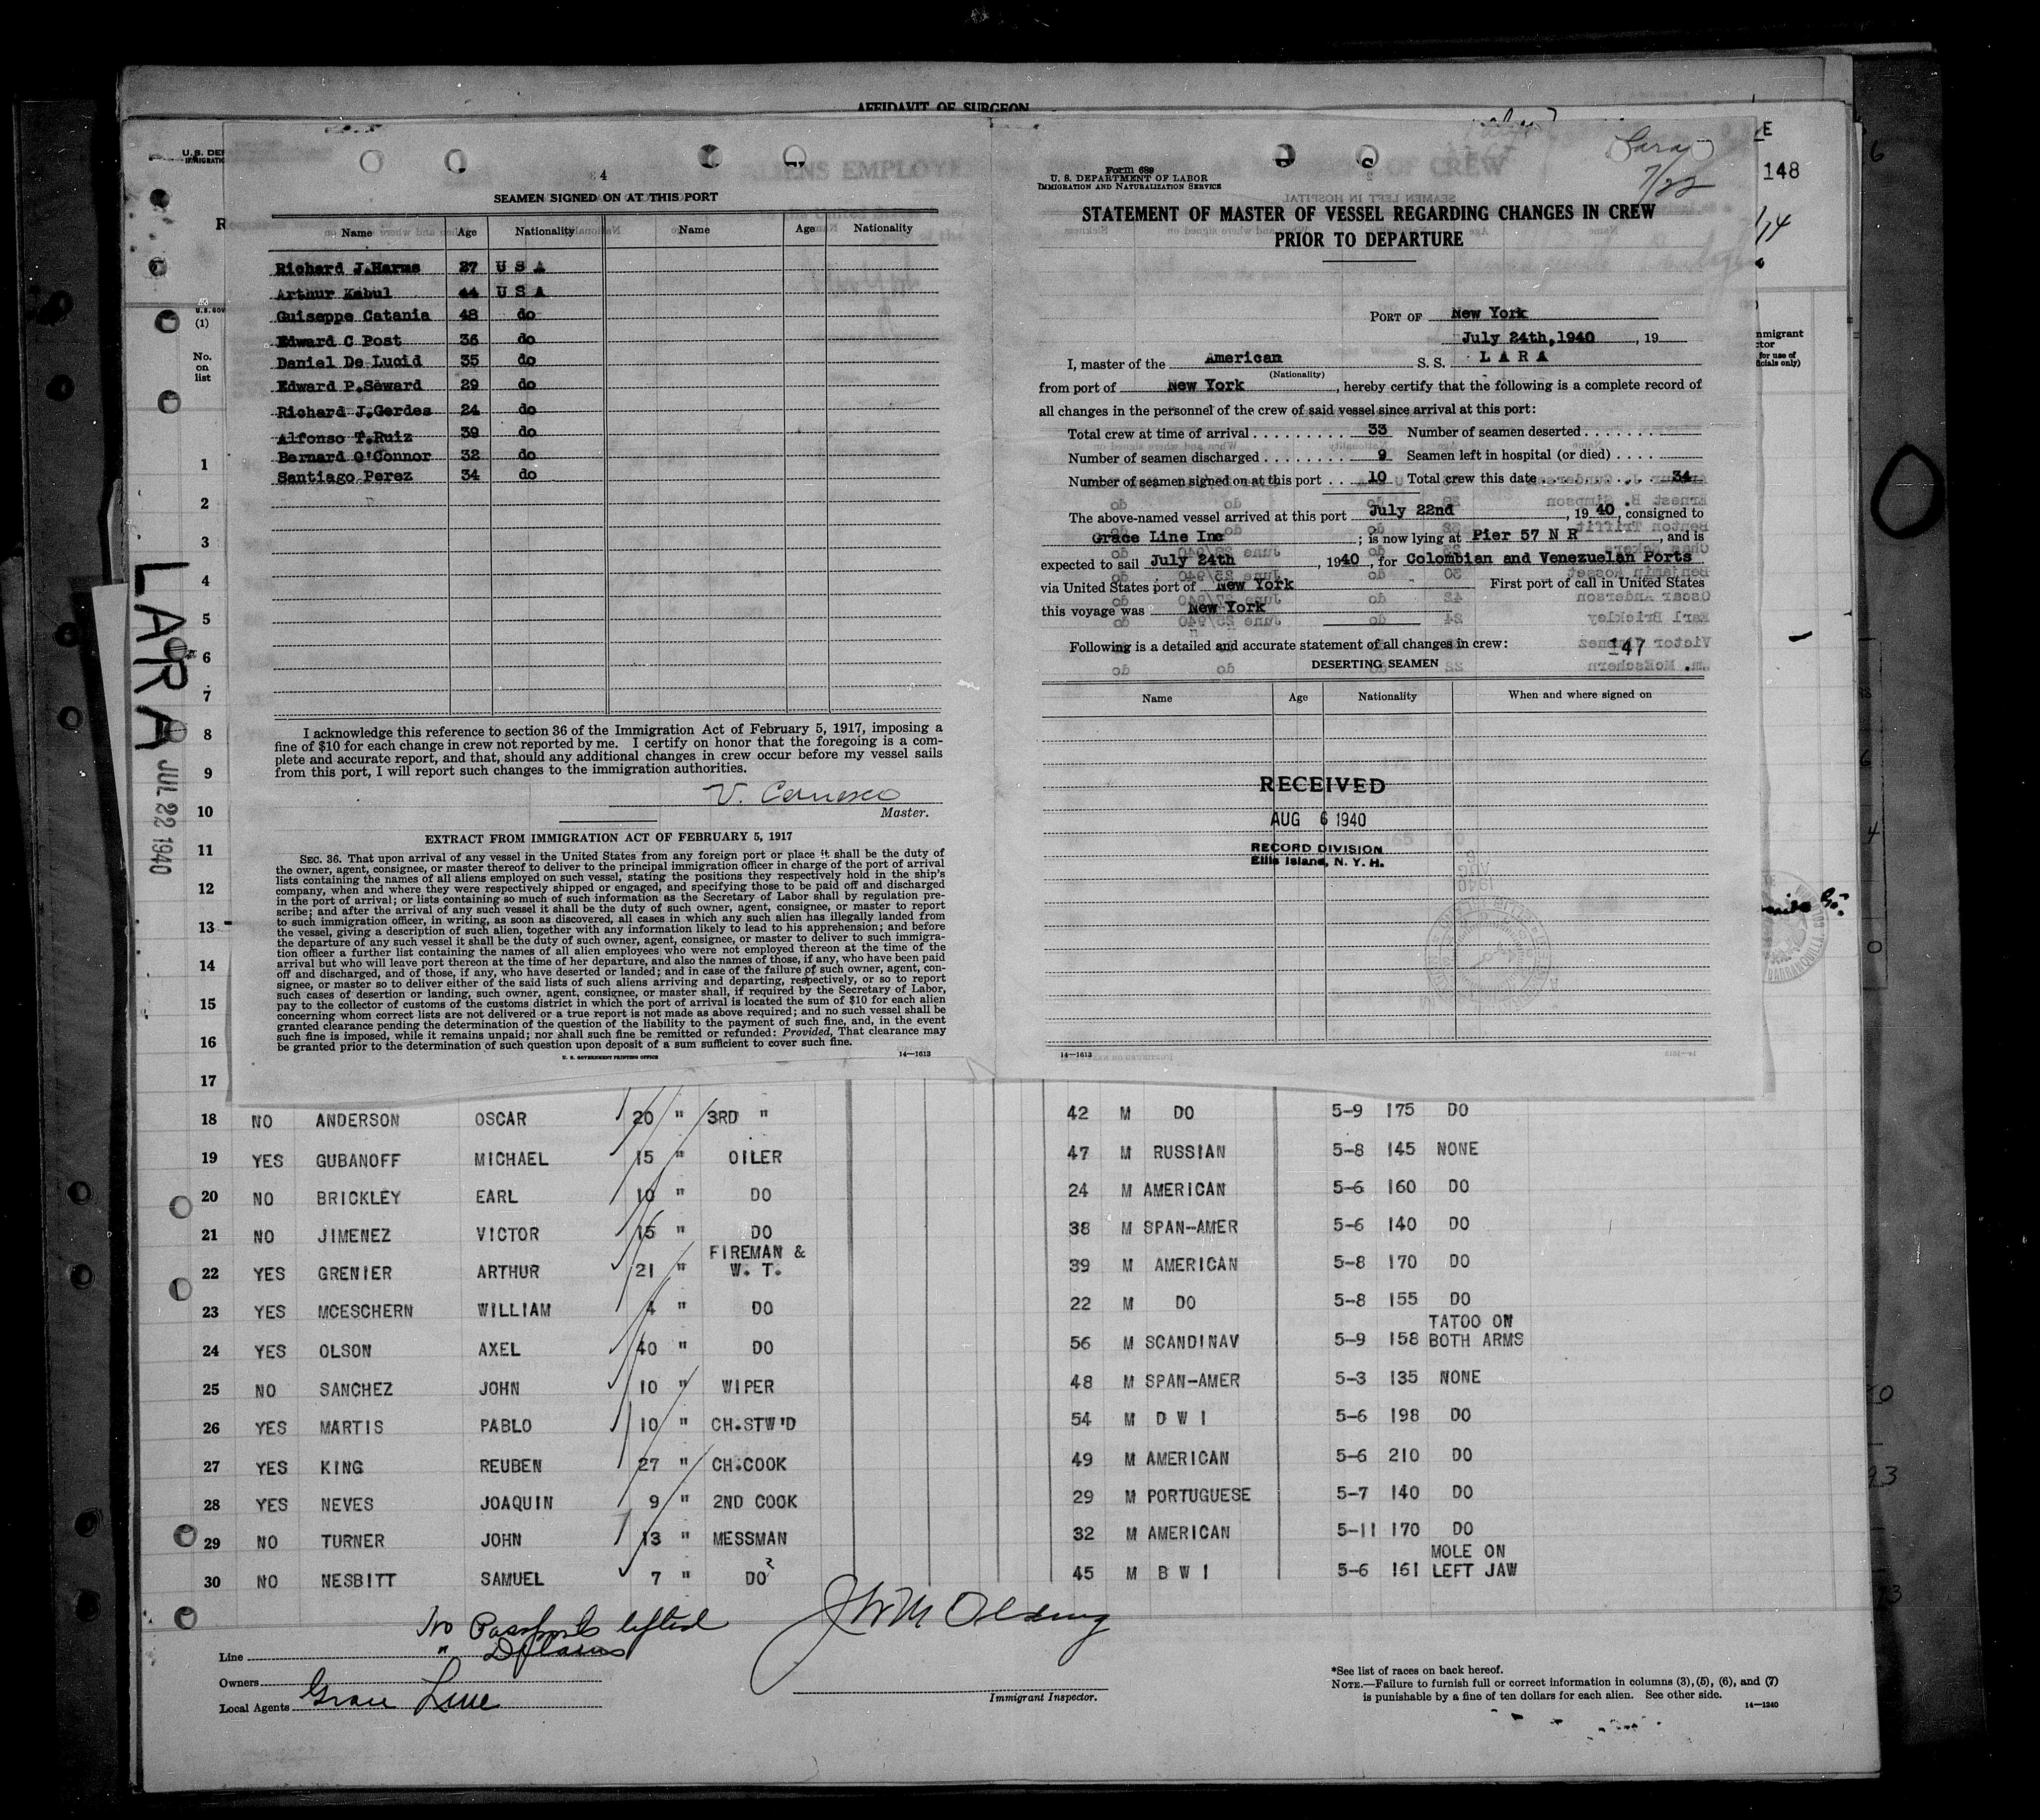 AFFIDAVIT OF SURGEON
4
SEAMEN SIGNED ON AT THIS PORT
Name Age Nationality Name Age Nationality
Richard J.Harms 27 U S A
Arthur Kabul 44 U S A
Guiseppe Catania 48 do
Edward C Post 36 do
Daniel De Lucid 35 do
Edward P.Seward 29 do
Richard J.Gerdes 24 do
Alfonso T.Ruiz 39 do
Bernard O'Connor 32 do
Santiago Perez 34 do
I acknowledge this reference to section 36 of the Immigration Act of February 5, 1917, imposing a
fine of $10 for each change in crew not reported by me. I certify on honor that the foregoing is a com-
plete and accurate report, and that, should any additional changes in crew occur before my vessel sails
from this port, I will report such changes to the immigration authorities.
Master.
EXTRACT FROM IMMIGRATION ACT OF FEBRUARY 5, 1917
SEC. 36. That upon arrival of any vessel in the United States from any foreign port or place it shall be the duty of
the owner, agent, consignee, or master thereof to deliver to the principal immigration officer in charge of the port of arrival
lists containing the names of all aliens employed on such vessel, stating the positions they respectively hold in the ship's
company, when and where they were respectively shipped or engaged, and specifying those to be paid off and discharged
in the port of arrival; or lists containing so much of such information as the Secretary of Labor shall by regulation pre-
scribe; and after the arrival of any such vessel it shall be the duty of such owner, agent, consignee, or master to report
to such immigration officer, in writing, as soon as discovered, all cases in which any such alien has illegally landed from
the vessel, giving a description of such alien, together with any information likely to lead to his apprehension; and before
the departure of any such vessel it shall be the duty of such owner, agent, consignee, or master to deliver to such immigra-
tion officer a further list containing the names of all alien employees who were not employed thereon at the time of the
arrival but who will leave port thereon at the time of her departure, and also the names of those, if any, who have been paid
off and discharged, and of those, if any, who have deserted or landed; and in case of the failure of such owner, agent, con-
signee, or master so to deliver either of the said lists of such aliens arriving and departing, respectively, or so to report
such cases of desertion or landing, such owner, agent, consignee, or master shall, if required by the Secretary of Labor,
pay to the collector of customs of the customs district in which the port of arrival is located the sum of $10 for each alien
concerning whom correct lists are not delivered or a true report is not made as above required; and no such vessel shall be
granted clearance pending the determination of the question of the liability to the payment of such fine, and, in the event
such fine is imposed, while it remains unpaid; nor shall such fine be remitted or refunded: Provided, That clearance may
be granted prior to the determination of such question upon deposit of a sum sufficient to cover such fine.
U. S. GOVERNMENT PRINTING OFFICE 14—1613
Lara
7/22
Form 689
U. S. DEPARTMENT OF LABOR
IMMIGRATION AND NATURALIZATION SERVICE
STATEMENT OF MASTER OF VESSEL REGARDING CHANGES IN CREW
PRIOR TO DEPARTURE
PORT OF New York
July 24th,1940 , 19
I, master of the American S. S. L A R A
(Nationality)
from port of New York , hereby certify that the following is a complete record of
all changes in the personnel of the crew of said vessel since arrival at this port:
Total crew at time of arrival 33 Number of seamen deserted
Number of seamen discharged 9 Seamen left in hospital (or died)
Number of seamen signed on at this port 10 Total crew this date 34
The above-named vessel arrived at this port July 22nd , 1940, consigned to
Grace Line Inc ; is now lying at Pier 57 N R , and is
expected to sail July 24th , 1940, for Colombian and Venezuelan Ports
via United States port of New York First port of call in United States
this voyage was New York
Following is a detailed and accurate statement of all changes in crew:
147
DESERTING SEAMEN
Name Age Nationality When and where signed on
RECEIVED
AUG 6 1940
RECORD DIVISION
Ellis Island, N. Y. H.
14—1613
148
LARA
JUL 22 1940
(1)
No.
on
list
1
2
3
4
5
6
7
8
9
10
11
12
13
14
15
16
17
18 NO ANDERSON OSCAR 20 " 3RD " 42 M DO 5-9 175 DO
19 YES GUBANOFF MICHAEL 15 " OILER 47 M RUSSIAN 5-8 145 NONE
20 NO BRICKLEY EARL 10 " DO 24 M AMERICAN 5-6 160 DO
21 NO JIMENEZ VICTOR 15 " DO 38 M SPAN-AMER 5-6 140 DO
22 YES GRENIER ARTHUR 21 " FIREMAN & W. T. 39 M AMERICAN 5-8 170 DO
23 YES MCESCHERN WILLIAM 4 " DO 22 M DO 5-8 155 DO
24 YES OLSON AXEL 40 " DO 56 M SCANDINAV 5-9 158 TATOO ON BOTH ARMS
25 NO SANCHEZ JOHN 10 " WIPER 48 M SPAN-AMER 5-3 135 NONE
26 YES MARTIS PABLO 10 " CH.STW'D 54 M D W I 5-6 198 DO
27 YES KING REUBEN 27 " CH.COOK 49 M AMERICAN 5-6 210 DO
28 YES NEVES JOAQUIN 9 " 2ND COOK 29 M PORTUGUESE 5-7 140 DO
29 NO TURNER JOHN 13 " MESSMAN 32 M AMERICAN 5-11 170 DO
30 NO NESBITT SAMUEL 7 " DO 45 M B W I 5-6 161 MOLE ON LEFT JAW
No Passports lifted
Line
Owners
Local Agents Grace Line
Immigrant Inspector.
*See list of races on back hereof.
NOTE.—Failure to furnish full or correct information in columns (3), (5), (6), and (7)
is punishable by a fine of ten dollars for each alien. See other side.
14—1240